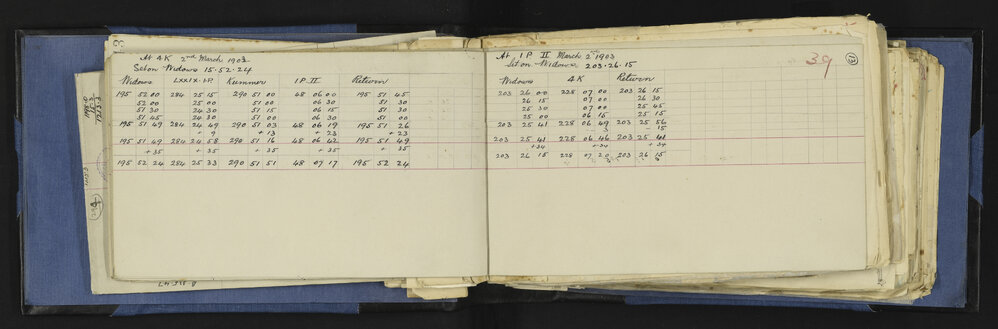 At 4 K 2nd March 1903
Set on Widows 15.52.24
Widows LXXIX.I.P. Hummer I P II Return
195 52 00 284 25 15 290 51 00 48 06 00 195 51 45
52 00 25 00 51 00 06 30 51 30
51 30 24 30 51 15 06 15 51 30
51 45 24 30 51 00 06 30 51 00
195 51 49 284 24 49 290 51 03 48 06 19 195 51 26
+ 9 + 13 + 23 + 23
195 51 49 284 24 58 290 51 16 48 06 42 195 51 49
+ 35 + 35 + 35 + 35 + 35
195 52 24 284 25 33 290 51 51 48 07 17 195 52 24
At I P II March 2nd 1903
Set on Widows 203.26.15
39
Widows 4 K Return
203 26 00 228 07 00 203 26 15
26 15 07 00 26 30
25 30 07 00 25 45
25 00 06 15 25 15
203 25 41 228 06 49 203 25 56
3 - 15
203 25 41 228 06 46 203 25 41
+ 34 + 34 + 34
203 26 15 228 07 20 203 26 15